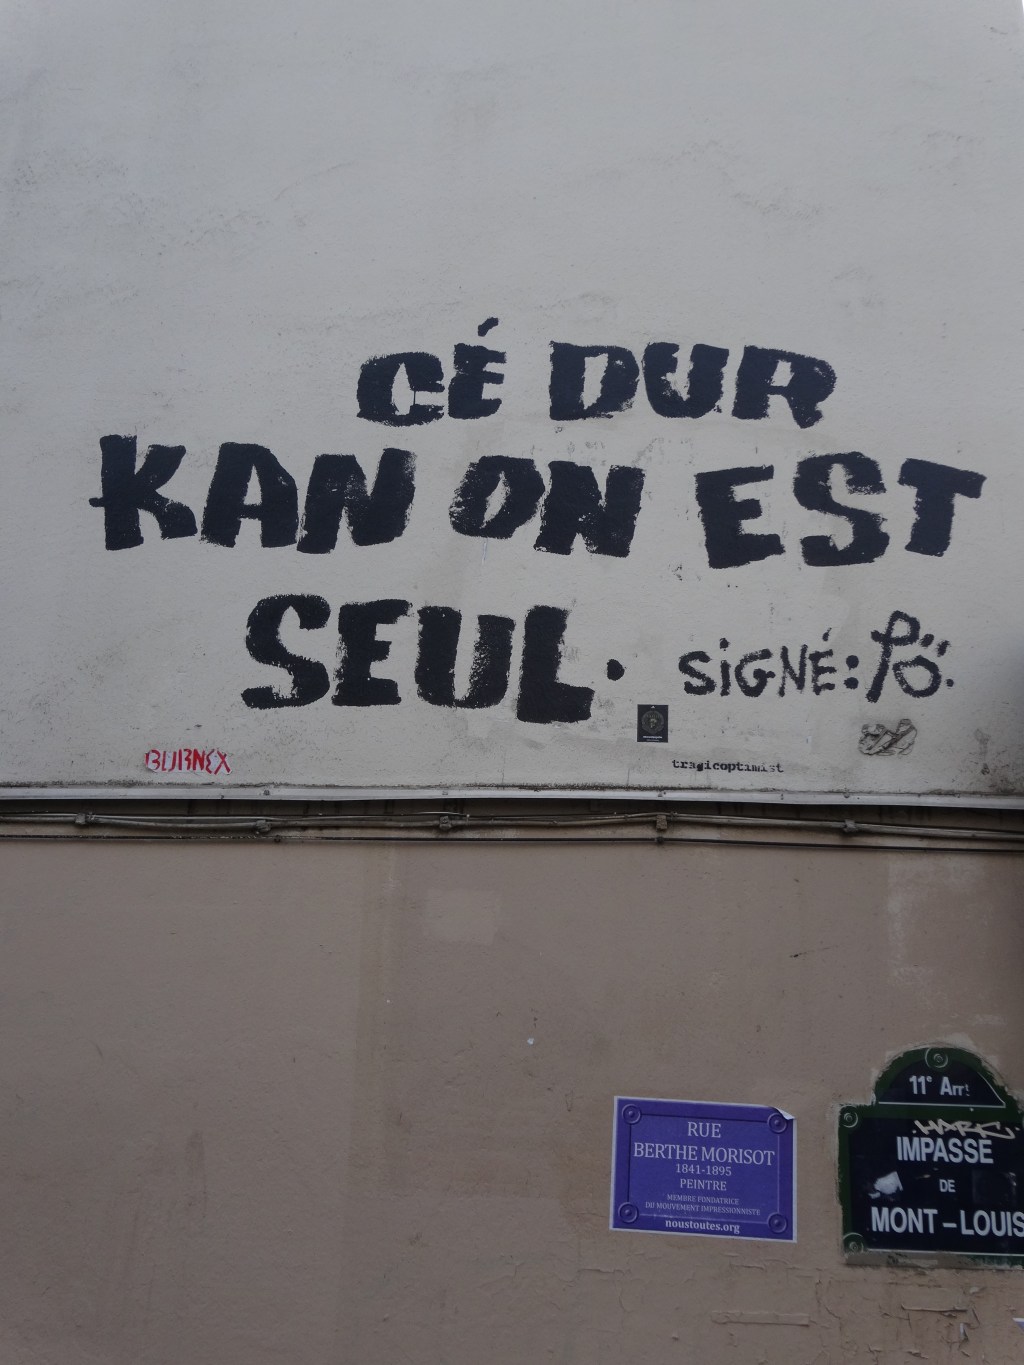 CÉ DUR
KAN ON EST
SEUL.
SiGNÉ: Pö.
BURNEX
tragicoptimist
RUE
BERTHE MORISOT
1841-1895
PEINTRE
MEMBRE FONDATRICE
DU MOUVEMENT IMPRESSIONNISTE
noustoutes.org
11e Arrt
IMPASSE
DE
MONT-LOUIS